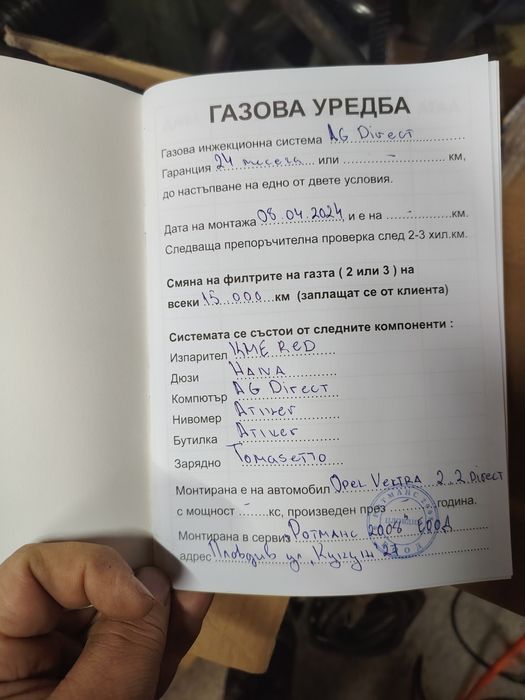 ГАЗОВА УРЕДБА
Газова инжекционна система AG Direct
Гаранция 24 месеца или - км,
до настъпване на едно от двете условия.
Дата на монтажа 08.04.2024, и е на - км.
Следваща препоръчителна проверка след 2-3 хил.км.
Смяна на филтрите на газта ( 2 или 3 ) на
всеки 15 000 км (заплащат се от клиента)
Системата се състои от следните компоненти :
Изпарител KME RED
Дюзи HANA
Компютър AG Direct
Нивомер Atiker
Бутилка Atiker
Зарядно Tomasetto
Монтирана е на автомобил Opel Vektra 2.2 Direct
с мощност - кс, произведен през година.
Монтирана в сервиз "Ротманс 2008" ЕООД
адрес Пловдив ул. Кукуш 27